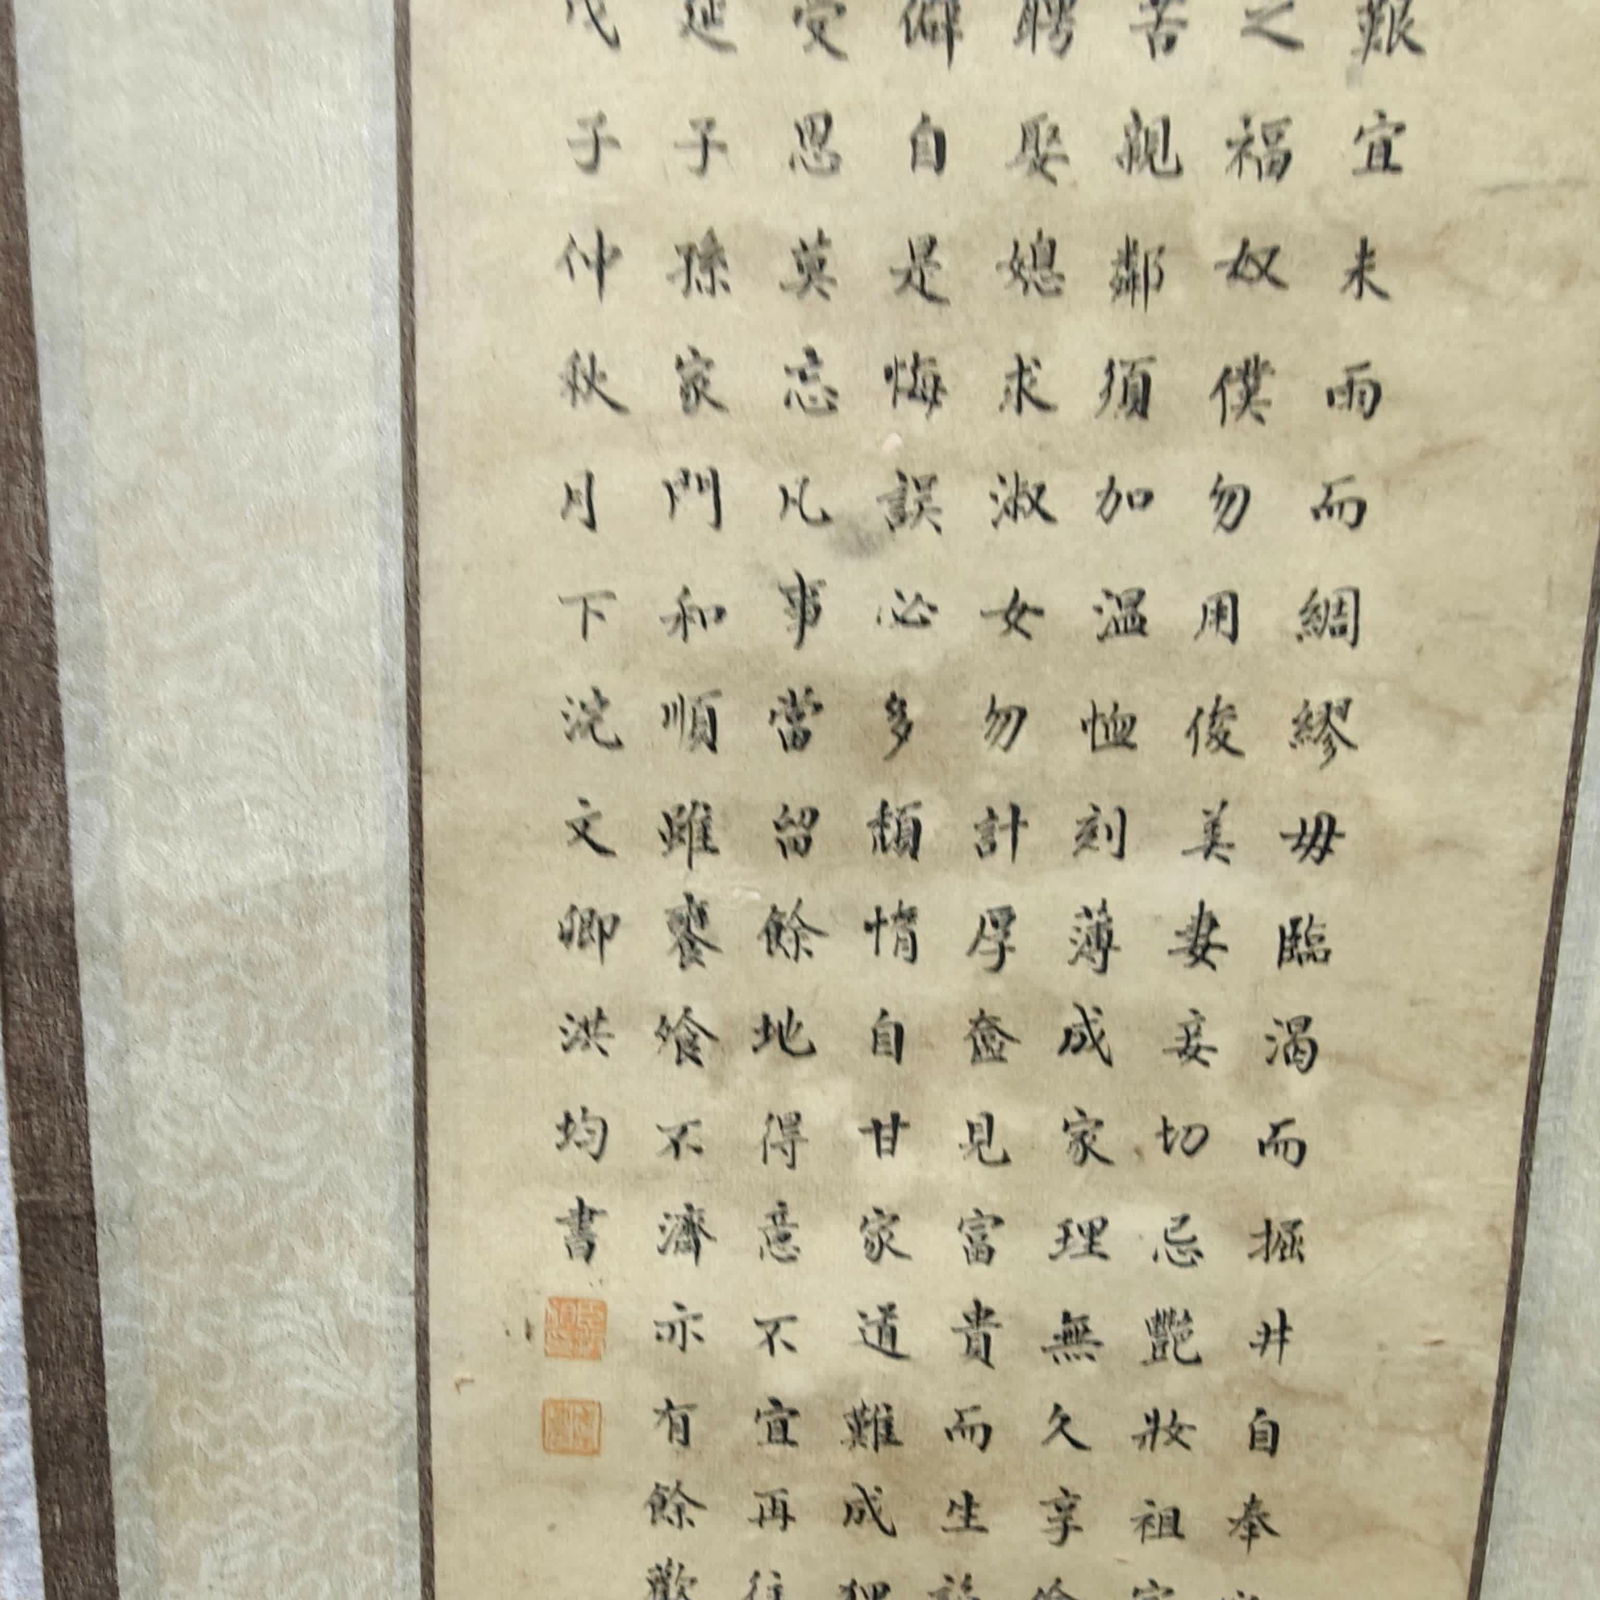 艱宜未雨而綢繆毋臨渴而掘井自奉
之福奴僕勿用俊美妻妾切忌艷妝祖宗
苦親鄰須加温恤刻薄成家理無久享倫
聘娶媳求淑女勿計厚奩見富貴而生諂
僻自是悔誤必多頽惰自甘家道難成狎
受思莫忘凡事當留餘地得意不宜再往
延子孫家門和順雖饔飧不濟亦有餘歡
戊子仲秋月下浣文卿洪均書